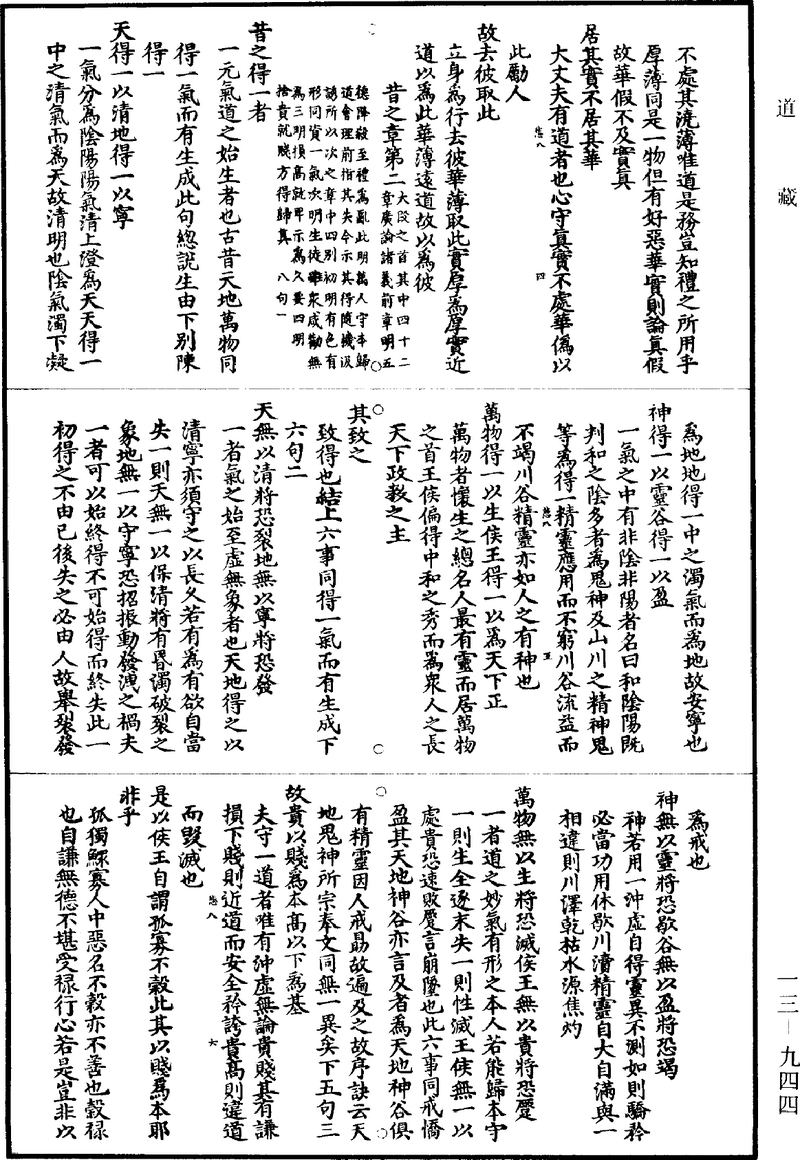 道藏
一三—九四四
不處其澆薄唯道是務豈知禮之所用乎
厚薄同是一物但有好惡華實則論真假
故華假不及實真
居其實不居其華
大丈夫有道者也心守真實不處華偽以
此勵人
故去彼取此
立身為行去彼華薄取此實厚為厚實近
道以為此華薄遠道故以為彼
昔之章第二
大段之首其中四十二
章廣論諸義前章明五
德降殺至禮為亂此明萬人守本歸
道會理前指其失今示其得隨機汲
誘所以次之章中四别初明有色有
形同資一氣次明生徒雖衆咸勸無
為三明損高就卑示為久要四明
捨貴就賤方得歸真
八句一
昔之得一者
一元氣道之始生者也古昔天地萬物同
得一氣而有生成此句總說生由下别陳
得一
天得一以清地得一以寧
一氣分為陰陽陽氣清上澄為天天得一
中之清氣而為天故清明也陰氣濁下凝
為地地得一中之濁氣而為地故安寧也
神得一以靈谷得一以盈
一氣之中有非陰非陽者名曰和陰陽既
判和之陰多者為鬼神及山川之精神鬼
等為得一精靈應用而不窮川谷流益而
不竭川谷精靈亦如人之有神也
萬物得一以生侯王得一以為天下正
萬物者懷生之總名人最有靈而居萬物
之首王侯偏得中和之秀而為衆人之長
天下政教之主
其致之
致得也結上六事同得一氣而有生成下
六句二
天無以清將恐裂地無以寧將恐發
一者氣之始至虛無象者也天地得之以
清寧亦須守之以長久若有為有欲自當
失一則天無一以保清將有昬濁破裂之
象地無一以守寧恐招振動發洩之禍夫
一者可以始終得不可始得而終失此一
初得之不由已後失之必由人故舉裂發
為戒也
神無以靈將恐歇谷無以盈將恐竭
神若用一沖虛自得靈異不測如則驕矜
必當功用休歇川瀆精靈自大自滿與一
相違則川澤乾枯水源焦灼
萬物無以生將恐滅侯王無以貴將恐蹷
一者道之妙氣有形之本人若能歸本守
一則生全逐末失一則性滅王侯無一以
處貴恐速敗蹷言崩墜也此六事同戒憍
盈其天地神谷亦言及者為天地神谷俱
有精靈因人戒勗故遍及之故序訣云天
地鬼神所宗奉文同無一異矣下五句三
故貴以賤為本高以下為基
夫守一道者唯有沖虛無論貴賤其有謙
損下賤則近道而安全矜誇貴高則違道
而毀滅也
是以侯王自謂孤寡不穀此其以賤為本耶
非乎
孤獨鰥寡人中惡名不穀亦不善也穀祿
也自謙無德不堪受祿行心若是豈非以